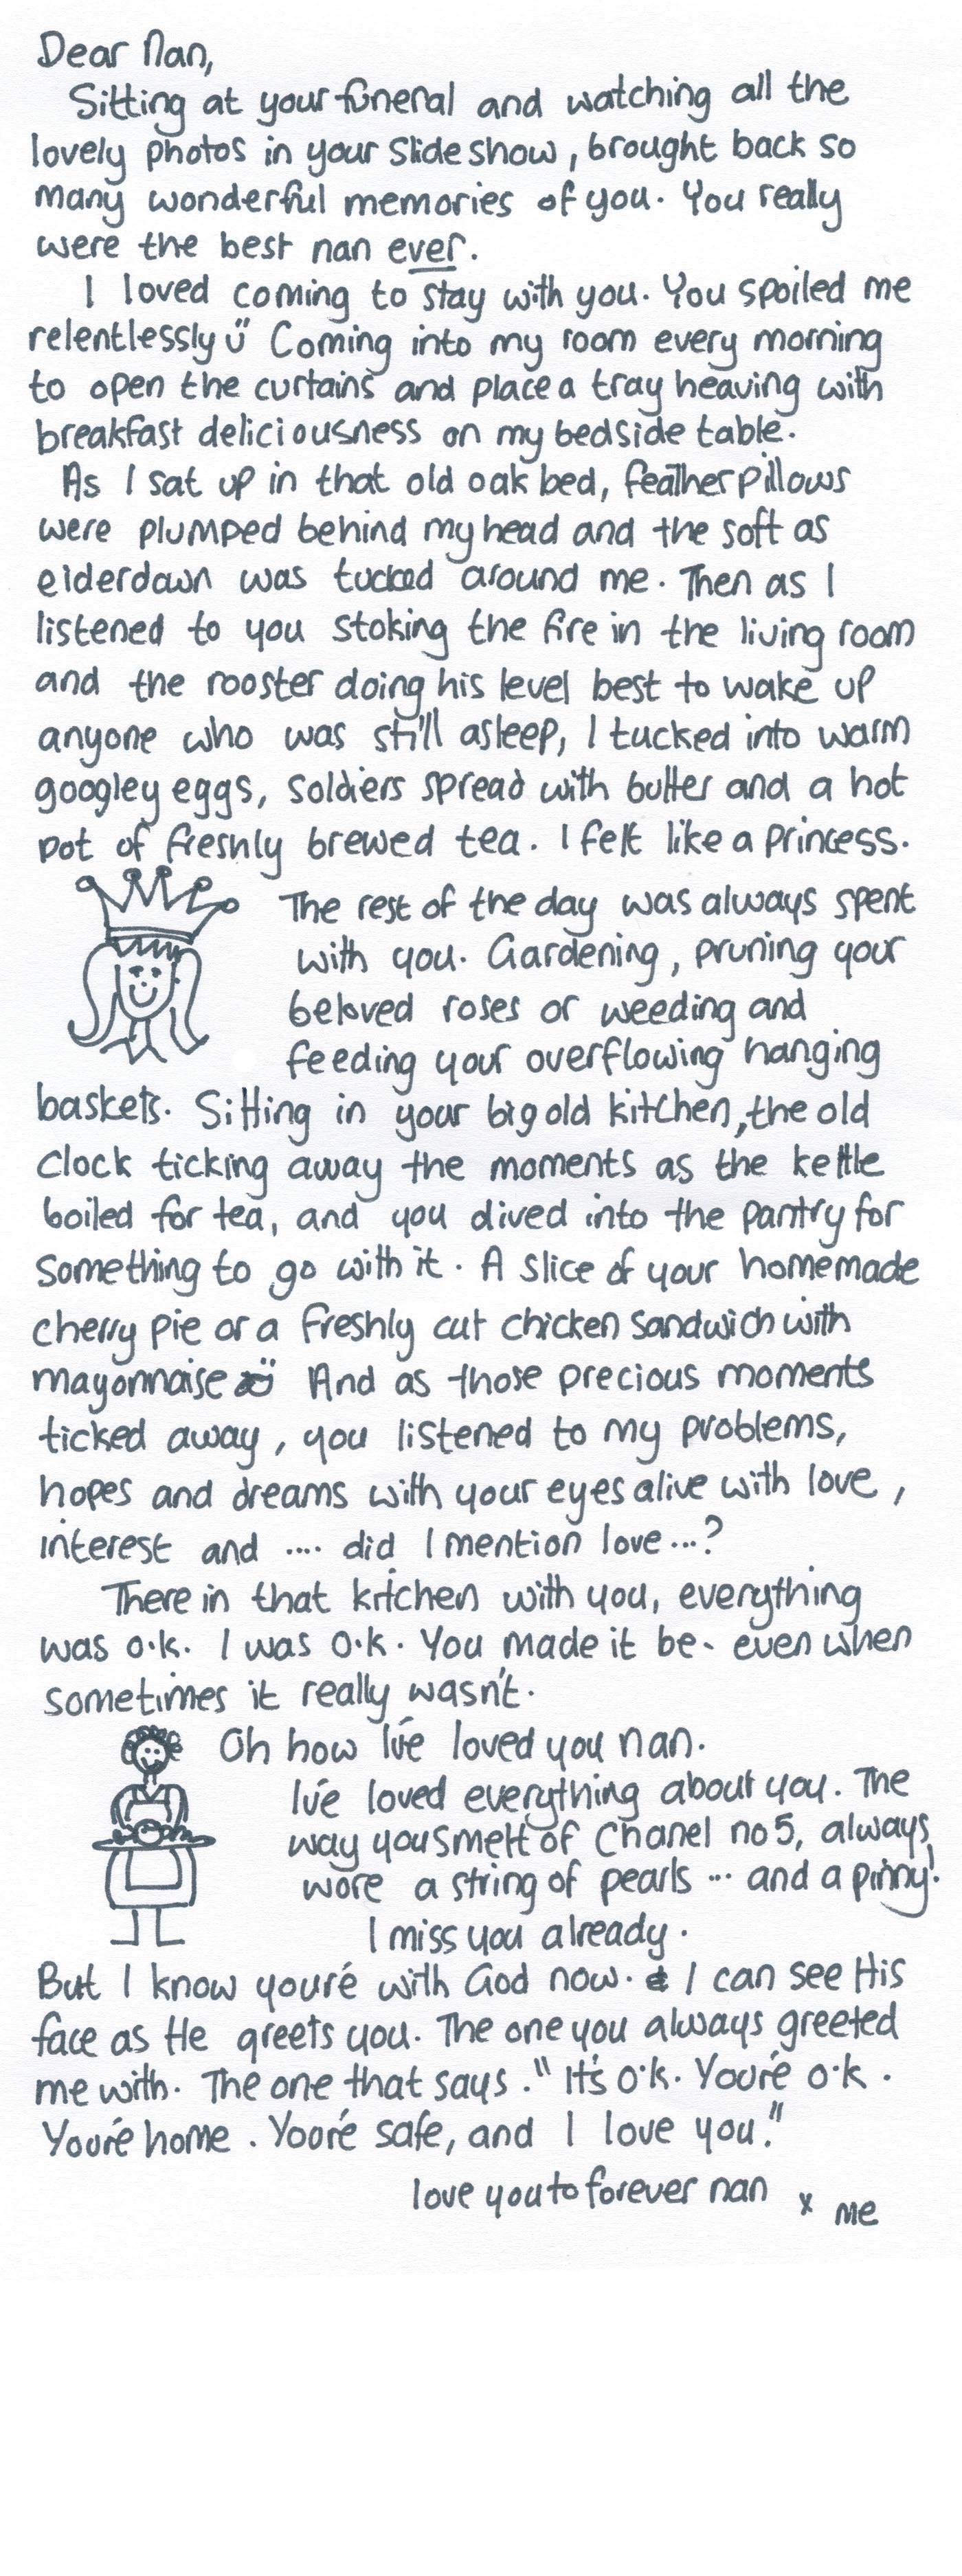 Dear Nan,
Sitting at your funeral and watching all the
lovely photos in your slide show, brought back so
many wonderful memories of you. You really
were the best nan ever.
I loved coming to stay with you. You spoiled me
relentlessly ü Coming into my room every morning
to open the curtains and place a tray heaving with
breakfast deliciousness on my bedside table.
As I sat up in that old oak bed, feather pillows
were plumped behind my head and the soft as
eiderdown was tucked around me. Then as I
listened to you stoking the fire in the living room
and the rooster doing his level best to wake up
anyone who was still asleep, I tucked into warm
googley eggs, soldiers spread with butter and a hot
pot of freshly brewed tea. I felt like a princess.
The rest of the day was always spent
with you. Gardening, pruning your
beloved roses or weeding and
feeding your overflowing hanging
baskets. Sitting in your big old kitchen, the old
clock ticking away the moments as the kettle
boiled for tea, and you dived into the pantry for
something to go with it. A slice of your homemade
cherry pie or a freshly cut chicken sandwich with
mayonnaise And as those precious moments
ticked away, you listened to my problems,
hopes and dreams with your eyes alive with love,
interest and .... did I mention love...?
There in that kitchen with you, everything
was o.k. I was o.k. You made it be - even when
sometimes it really wasn't.
Oh how I've loved you nan.
I've loved everything about you. The
way you smelt of Chanel no 5, always
wore a string of pearls ... and a pinny!
I miss you already.
But I know you're with God now. & I can see His
face as He greets you. The one you always greeted
me with. The one that says. "It's o.k. You're o.k.
You're home. You're safe, and I love you."
love you to forever nan x me